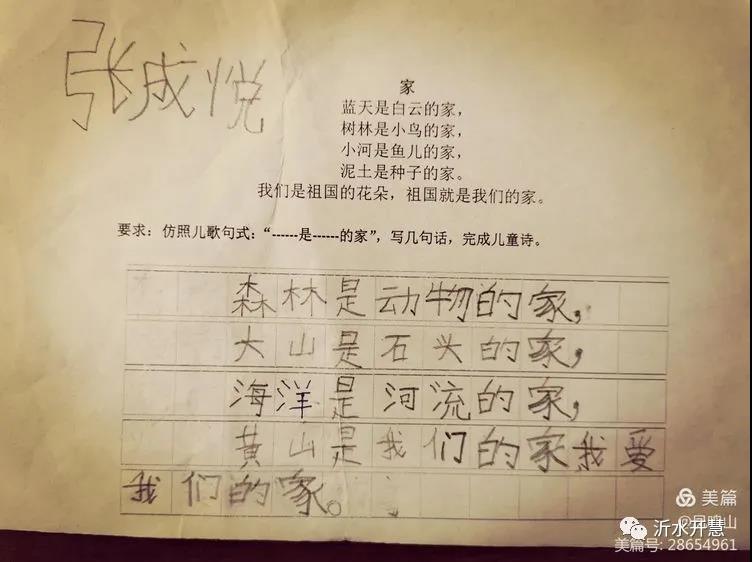 张成悦
家
蓝天是白云的家,
树林是小鸟的家,
小河是鱼儿的家,
泥土是种子的家。
我们是祖国的花朵，祖国就是我们的家。
要求：仿照儿歌句式：“------是------的家”，写几句话，完成儿童诗。
森林是动物的家,
大山是石头的家,
海洋是河流的家,
黄山是我们的家我爱
我们的家。
美篇
沂水开慧
美篇号: 28654961